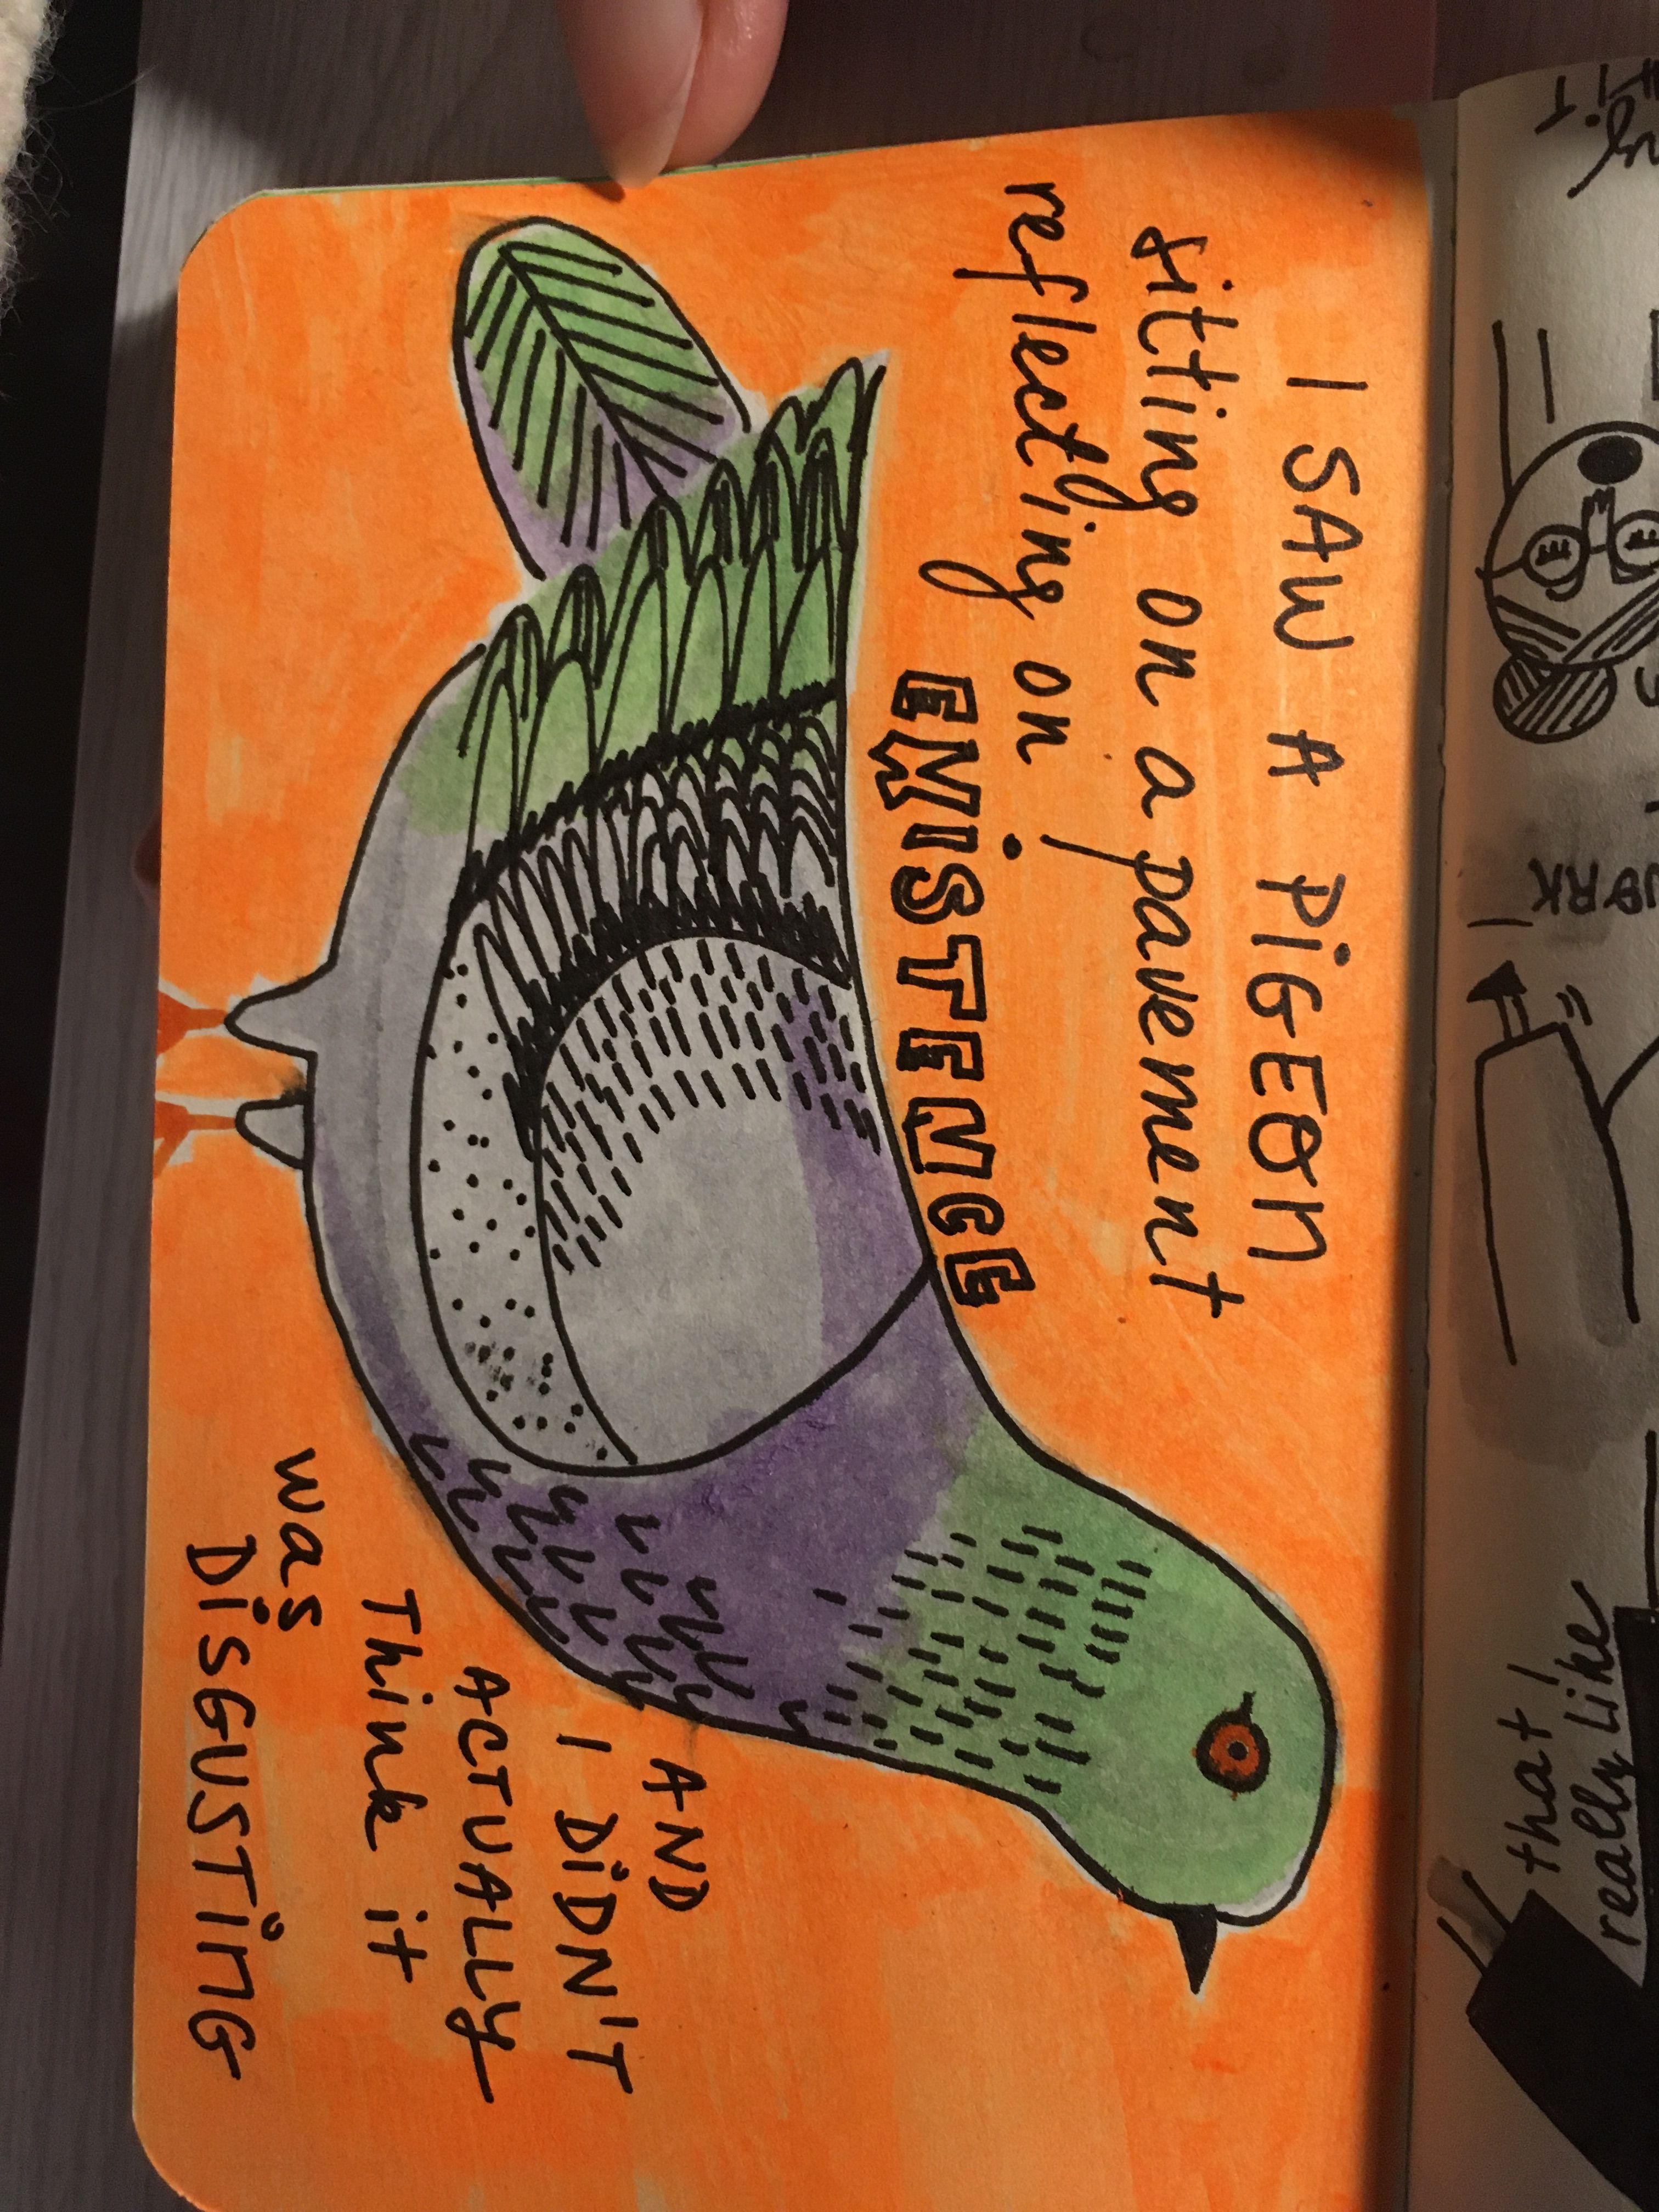 really Like
that!
I SAW A PiGEON
sitting on a pavement
reflecting on !
EXISTENCE
AND
I DiDN'T
ACTUALLY
Think it
was
DiSGUSTiNG